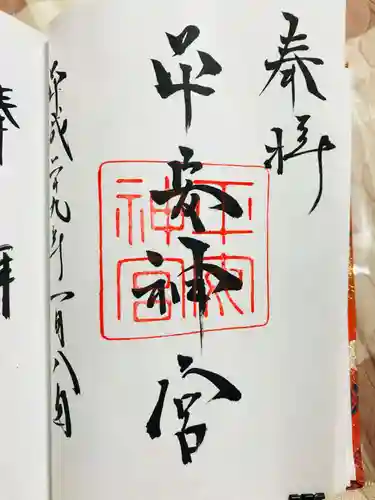 奉拝
平安神宮
平安神宮
平成廿九年一月八日
奉
拝